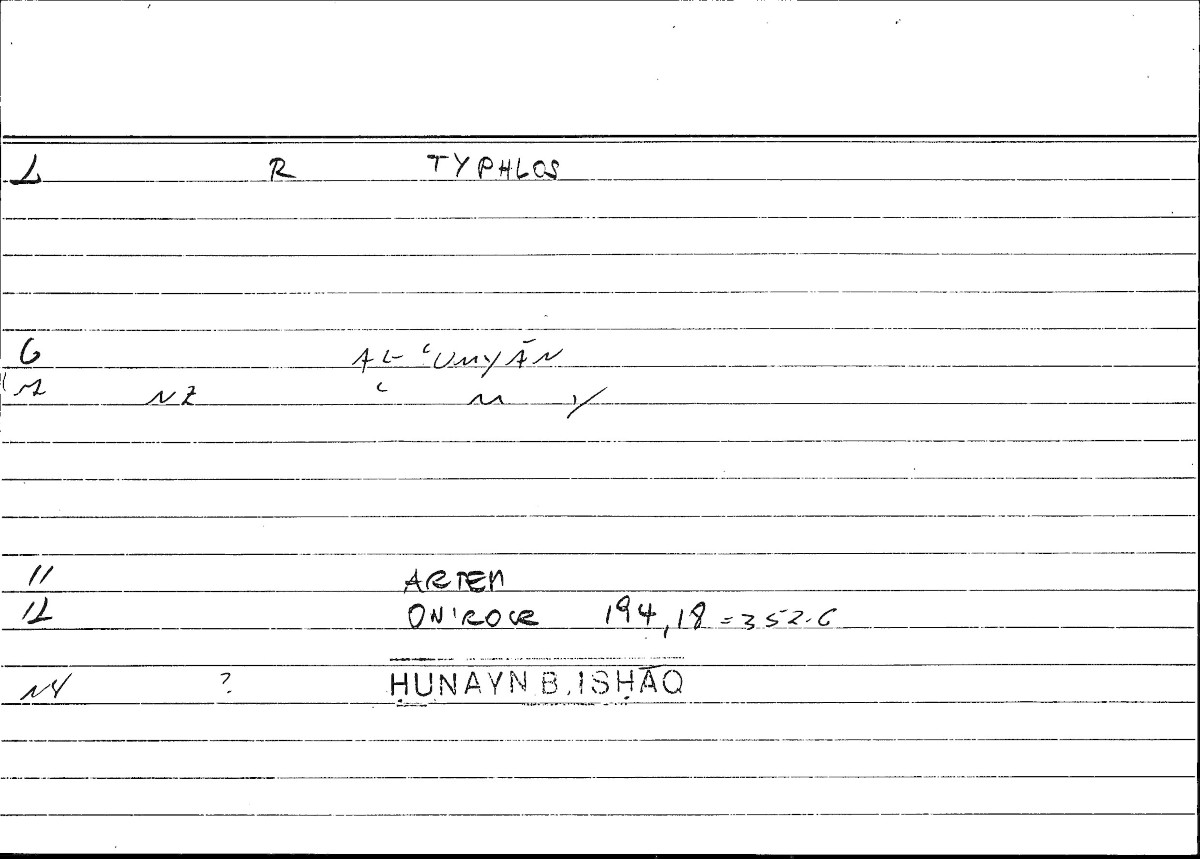 1 R TYPHLOS
6 AL-ʿUMYĀN
NZ ʿ M Y
11 ARTEM
12 ONIROCR 194,18 = 352.6
14 ? ḤUNAYN B. ISḤĀQ